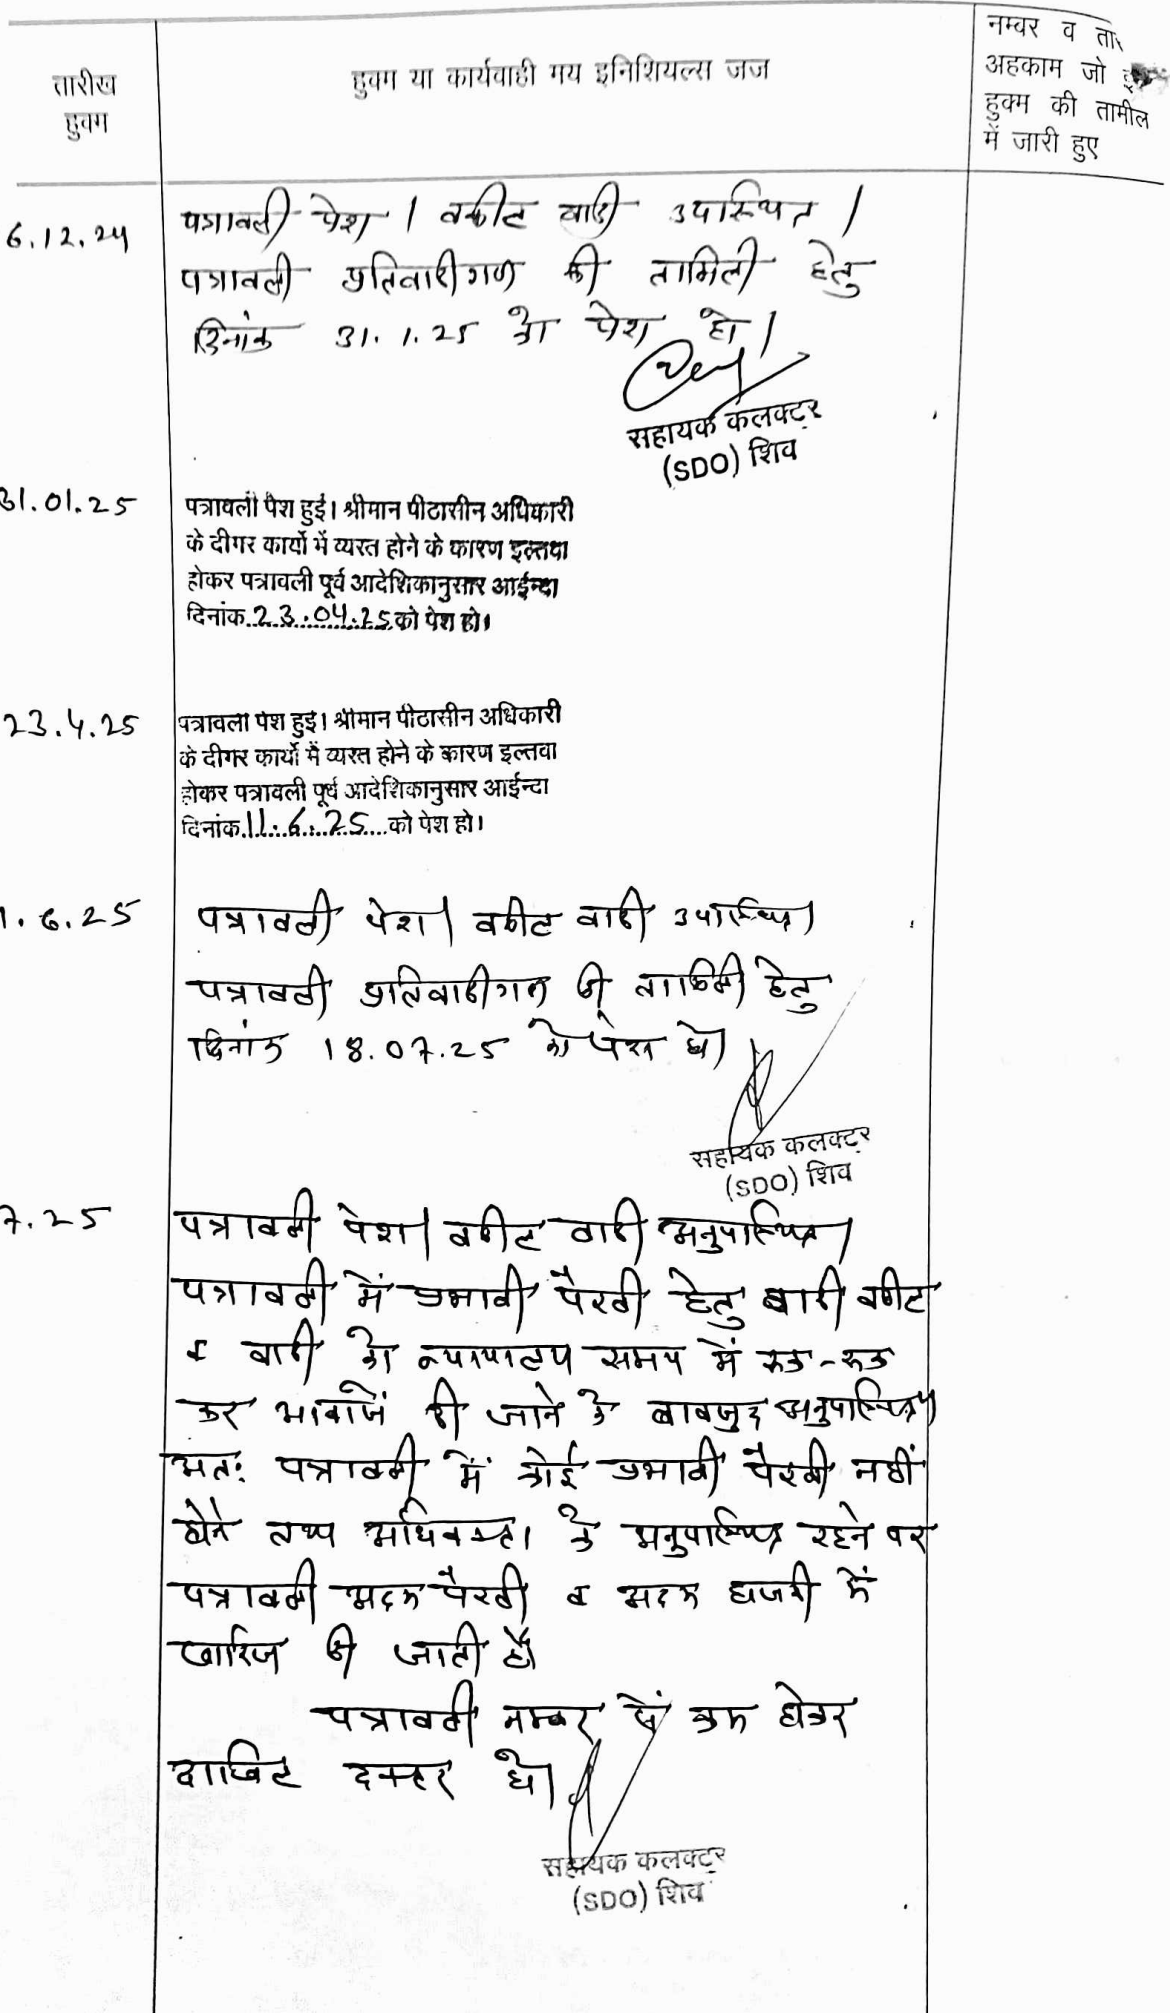 तारीख
हुक्म
हुक्म या कार्यवाही मय इनिशियल्स जज
नम्बर व
अहकाम जो
हुक्म की तामील
में जारी हुए
6.12.24
पत्रावली पेश। वकील वादी उपस्थित।
पत्रावली प्रतिवादीगण की तामिली हेतु
दिनांक 31.1.25 को पेश हो।
सहायक कलक्टर
(SDO) शिव
31.01.25
पत्रावली पेश हुई। श्रीमान पीठासीन अधिकारी
के दीगर कार्यो में व्यस्त होने के कारण इल्तवा
होकर पत्रावली पूर्व आदेशिकानुसार आईन्दा
दिनांक 23.04.25 को पेश हो।
23.4.25
पत्रावली पेश हुई। श्रीमान पीठासीन अधिकारी
के दीगर कार्यो में व्यस्त होने के कारण इल्तवा
होकर पत्रावली पूर्व आदेशिकानुसार आईन्दा
दिनांक 11.6.25 को पेश हो।
1.6.25
पत्रावली पेश। वकील वादी उपस्थित।
पत्रावली प्रतिवादीगण की तामिली हेतु
दिनांक 18.07.25 को पेश हो।
सहायक कलक्टर
(SDO) शिव
7.25
पत्रावली पेश। वकील वादी अनुपस्थित।
पत्रावली में प्रभावी पैरवी हेतु वादी वकील
व वादी को न्यायालय समय में रुक-रुक
कर आवाजें दी जाने के बावजुद अनुपस्थित।
अतः पत्रावली में कोई प्रभावी पैरवी नहीं
होने तथा अधिवक्ता के अनुपस्थित रहने पर
पत्रावली अदम पैरवी व अदम हाजरी में
खारिज की जाती है।
पत्रावली नम्बर से कम होकर
दाखिल दफ्तर हो।
सहायक कलक्टर
(SDO) शिव